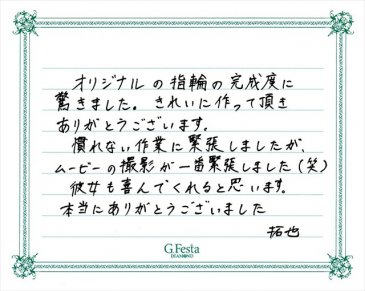 オリジナルの指輪の完成度に
驚きました。きれいに作って頂き
ありがとうございます。
慣れない作業に緊張しましたが、
ムービーの撮影が一番緊張しました(笑)
彼女も喜んでくれると思います。
本当にありがとうございました
拓也
G.Festa
DIAMOND